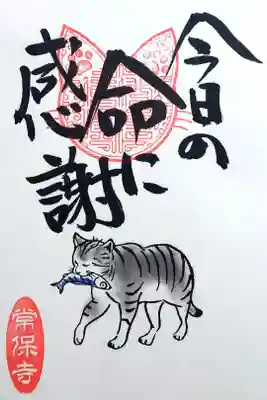 今日の
命に
感謝
常保寺